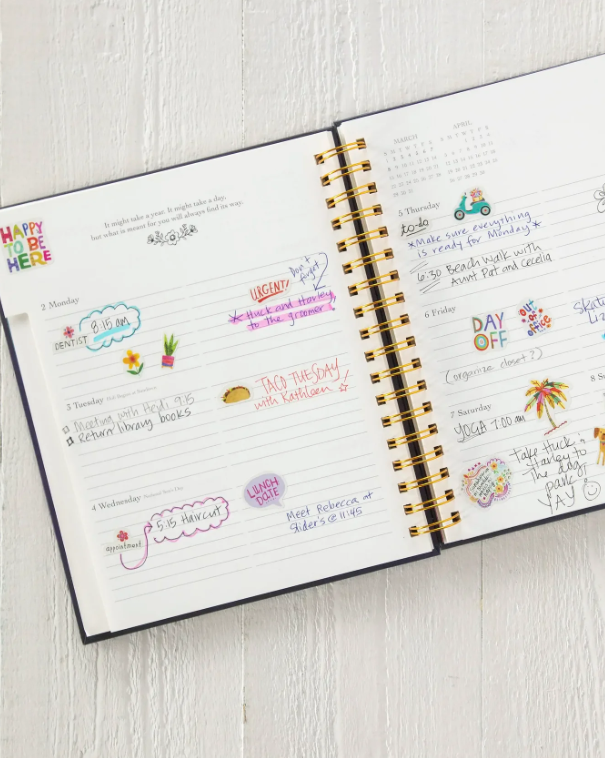 It might take a year. It might take a day,
but what is meant for you will always find its way.
HAPPY
TO BE
HERE
2 Monday
DENTIST
8:15 am
URGENT!
Don't
forget
* Huck and Harley
to the groomer
3 Tuesday
Meeting with Heidi 9:15
Return library books
TACO TUESDAY
with Kathleen ☆
4 Wednesday
appointment
5:15 Haircut
LUNCH
DATE
Meet Rebecca at
Slider's @ 11:45
MARCH
APRIL
5 Thursday
to-do
*Make sure everything
is ready for Monday*
6:30 Beach Walk with
Aunt Pat and Cecelia
6 Friday
DAY
OFF
OUT
OF
office
(organize closet?)
7 Saturday
YOGA 7:00 am
Take Huck &
Harley to the
dog park!
YAY! ☺